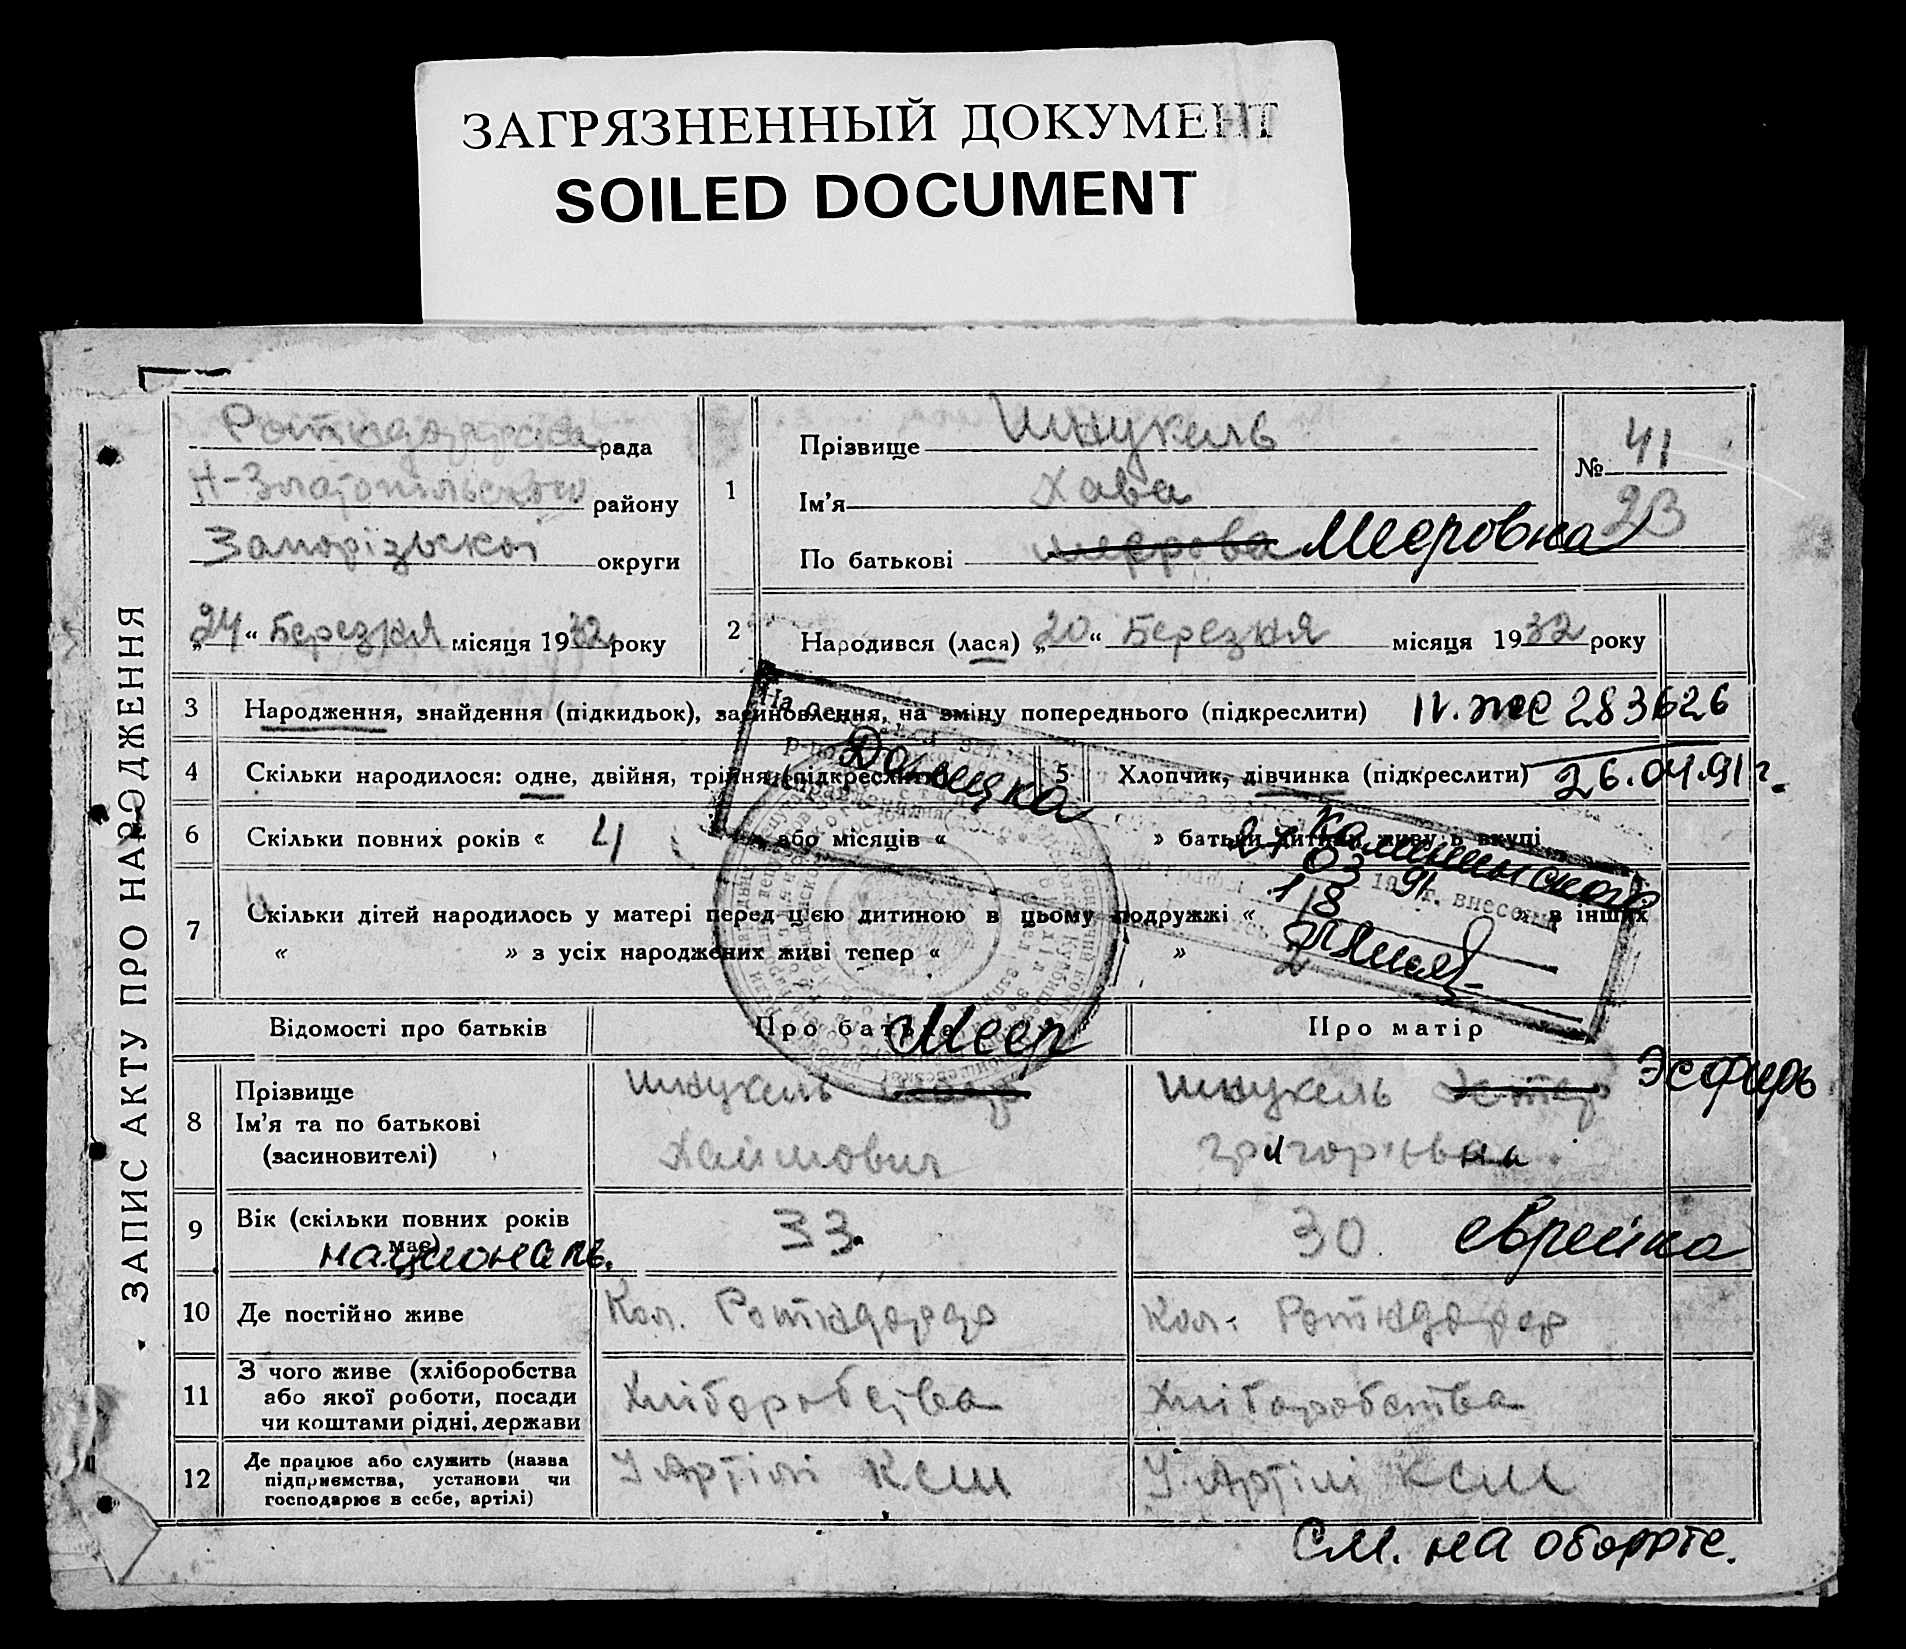 ЗАГРЯЗНЕННЫЙ ДОКУМЕНТ
SOILED DOCUMENT
ЗАПИС АКТУ ПРО НАРОДЖЕННЯ
рада
Н-Златопільського району
Запорізької округи
„24“ Березня місяця 1932 року
1
Прізвище Шнукель
Ім'я Хава
По батькові Мееровна
№ 41
23
2
Народився (лася) „20“ Березня місяця 1932 року
3 Народження, знайдення (підкидьок), засиновлення, на зміну попереднього (підкреслити) IV. же 283626
4 Скільки народилося: одне, двійня, трійня (підкреслити)
5 Хлопчик, дівчинка (підкреслити) 26.04.91 г.
6 Скільки повних років « 4 » або місяців « » батьки дитини живу в вкупі
7 Скільки дітей народилось у матері перед цією дитиною в цьому подружжі « » в інших
« » з усіх народжених живі тепер « »
На
Донецка
Калининского
03 91 г. внесены
18
Відомості про батьків
Про батька
Про матір
8 Прізвище
Ім'я та по батькові
(засиновителі)
Меер
Шнукель
Хаимович
Шнукель Эстер Эсфирь
Григорьевна
9 Вік (скільки повних років має)
национальн.
33
30 еврейка
10 Де постійно живе
Кол. Ротндорф
Кол. Ротндорф
11 З чого живе (хліборобства
або якої роботи, посади
чи коштами рідні, держави
Хліборобства
Хліборобства
12 Де працює або служить (назва
підприємства, установи чи
господарює в себе, артілі)
У Артілі КСМ
У Артілі КСМ
См. на обороте.